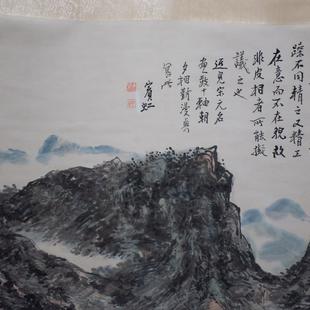 躁不同精之又精工
在意而不在貌故
非皮相者所能擬
議之也
近見宋元名
畫數十軸朝
夕相對漫
寫此
賓虹